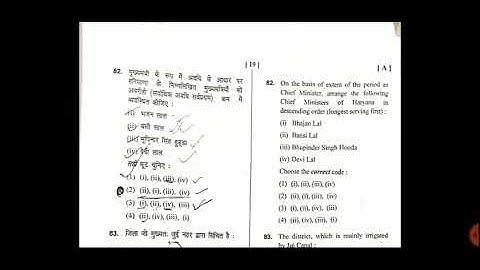 [ 19 ]
[ A ]
82. मुख्यमंत्री के रूप में अवधि के आधार पर
हरियाणा के निम्नलिखित मुख्यमंत्रियों को
अवरोही (सर्वाधिक अवधि सर्वप्रथम) क्रम में
व्यवस्थित कीजिए :
(i) भजन लाल
(ii) बंसी लाल
(iii) भूपिन्दर सिंह हुड्डा
(iv) देवी लाल
सही कूट चुनिए :
(1) (i), (ii), (iii), (iv)
(2) (ii), (i), (iii), (iv)
(3) (i), (ii), (iv), (iii)
(4) (ii), (iv), (iii), (i)
83. जिला जो मुख्यतः जुई नहर द्वारा सिंचित है :
82. On the basis of extent of the period as
Chief Minister, arrange the following
Chief Ministers of Haryana in
descending order (longest serving first) :
(i) Bhajan Lal
(ii) Bansi Lal
(iii) Bhupinder Singh Hooda
(iv) Devi Lal
Choose the correct code :
(1) (i), (ii), (iii), (iv)
(2) (ii), (i), (iii), (iv)
(3) (i), (ii), (iv), (iii)
(4) (ii), (iv), (iii), (i)
83. The district, which is mainly irrigated
by Jui Canal :